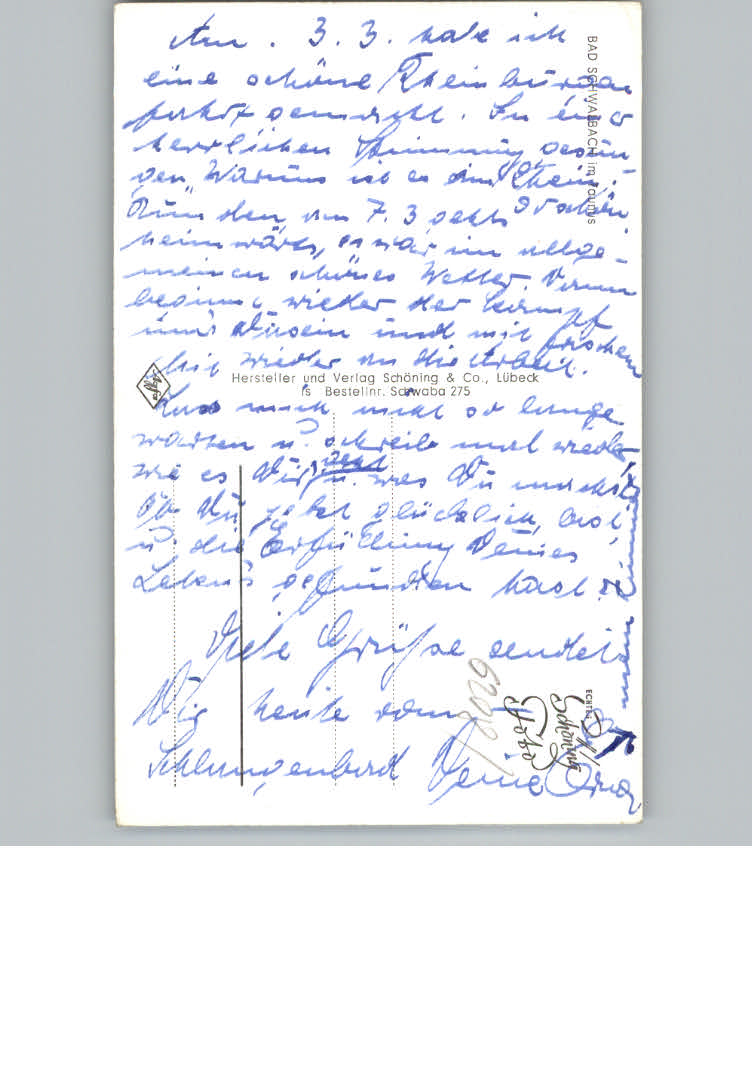 Am . 3. 3. habe ich
eine schöne Rheinburgen
fahrt gemacht. In einer
herrlichen Stimmung gesun
gen Warum ist es am Rhein
so schön
Nun den am 7. 3 gehts
heimwärts, es war im allge-
meinen schönes Wetter. Dann
beginnt wieder der Kampf
ums Dasein und mit frischem
Mut wieder an die Arbeit.
Lass mich nicht so lange
warten u. schreib mal wieder,
wie es Dir geht u. was Du machst
Ob Du jetzt glücklich bist
u. die Erfüllung Deines
Lebens gefunden hast
Viele Grüße sendet
Dir heute vom
Schlangenbad Deine
BAD SCHWALBACH im Taunus
Hersteller und Verlag Schöning & Co., Lübeck
is Bestellnr. Schwaba 275
Agfa
ECHTE
Schöning
Foto